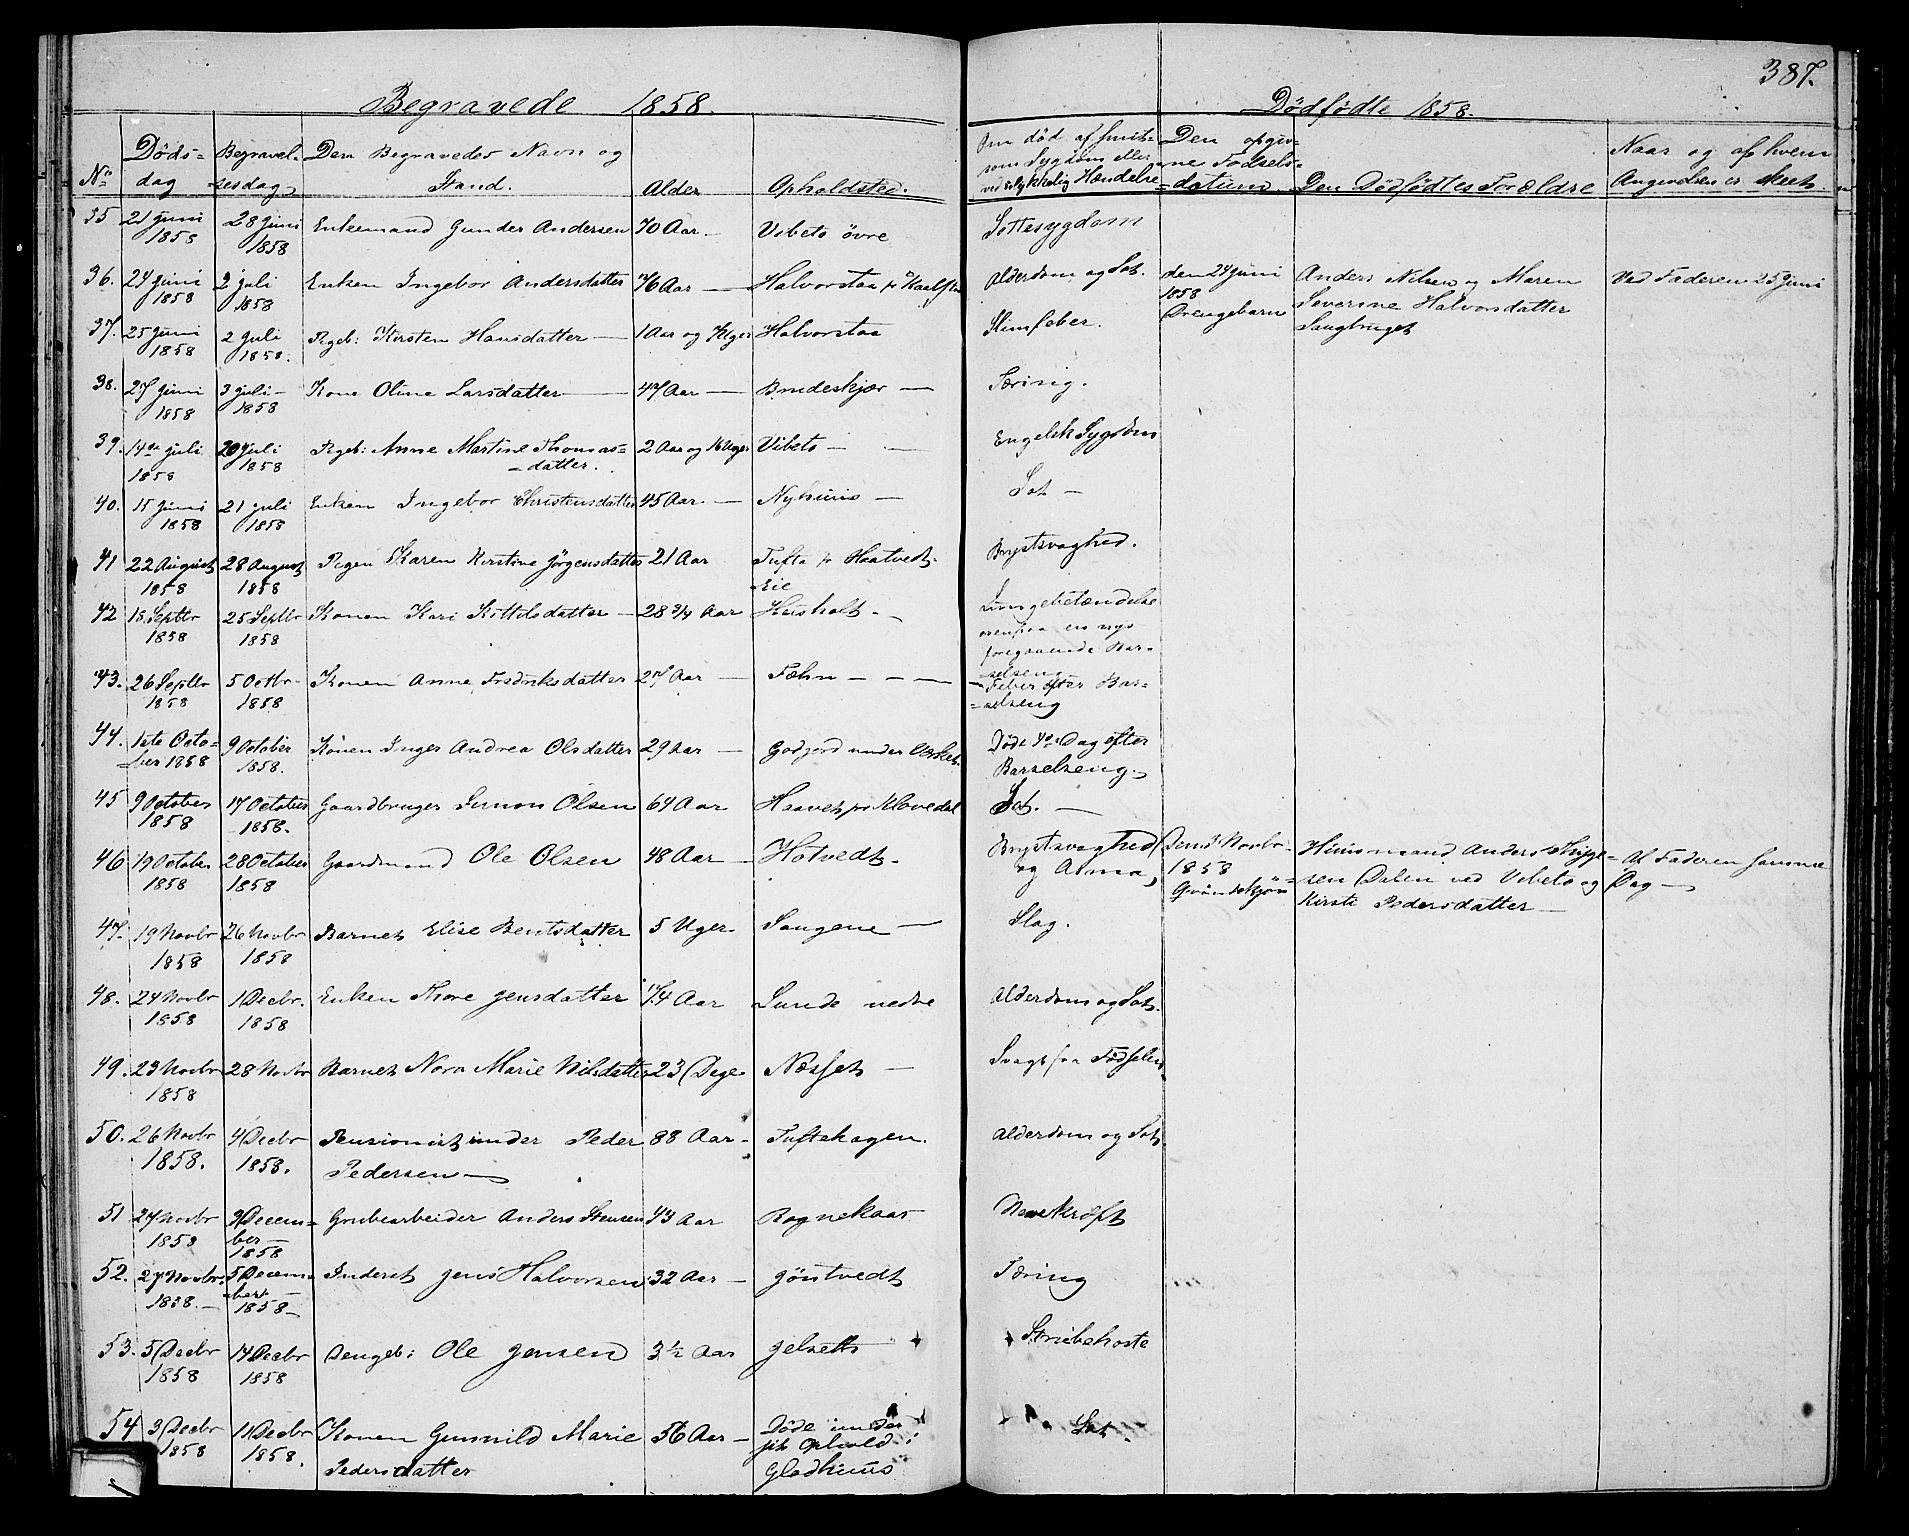 387.
Begravede 1858.
Dödfødte 1858.
No
Döds-
dag
Begravel-
sesdag
Den Begravedes Navn og
Stand.
Alder
Opholdsted.
død af smit-
som Sygdom eller
ved ulykkelig Hændelse
Den opgiv-
ne Fødsels-
=datum.
Den Dødfödtes Forældre
Naar og af hvem
Angivelsen er skeet.
35 21 juni 28 juni Enkemand Gunder Andersen 70 Aar. — Vibeto övre Sottesygdom
1858 1858
36. 24 juni 2 juli Enken Ingebor Andersdatter 76 Aar — Halvorstaa Alderdom og Sot. den 24 juni Anders Nilsen og Maren Ved Faderen 25 juni
1858 1858 1858 Severine Halvorsdatter
Drengebarn Saugbruget
37. 25 juni 2 juli Pigeb: Kirsten Hansdatter — 1 Aar og Uger Halvorstaa Slimfeber.
1858 1858.
38. 27 juni 3 juli — Kone Oline Larsdatter — 47 Aar — Brudeskjær — Tæring.
1858 1858
39. 14de juli 20 juli Pigeb: Anne Martine Thomas= 2 Aar og 16 Uger Vibeto — Engelsk Sygdom
1858 1858 =datter.
40. 15 juni 21 juli Enken Ingebor Christensdatter 45 Aar — Nyhuus — Sot —
1858 1858
41 22 August 28 August Pigen Karen Kirstine Jörgensdatter 21 Aar Tufta Haatvedt Brystsvaghed.
1858 1858 Eie
42 18 Septbr 25 Septbr Konen Kari Kittilsdatter — 28 3/4 Aar Heisholt — Lungebetændelse
1858 1858 ovenpaa en nys
foregaaende Bar=
selseng
43. 26 Septbr 5 Octbr Konen Anne Fredriksdatter 27 Aar — Fæhn — — — Feber efter Bar=
1858 1858 =selseng
44. 1ste Octo= 9 October Konen Inger Andrea Olsdatter 29 Aar — Godjord under Verket. Døde Dag efter
ber 1858 1858. Barselseng.
45 9 October 17 October Gaardbruger Simon Olsen 64 Aar Haavet Klovedal Sot. —
1858 1858.
46 19 October 28 October Gaardmand Ole Olsen 48 Aar — Hotvedt — Brystsvaghed Den Novbr Huusmand Anders Af Faderen samme
1858 1858 og 1858 sen Dalen ved Vibeto og Dag —
Kirsti Pedersdatter —
47. 19 Novbr 26 Novbr Barnet Elise Bentsdatter 5 Uger Saugene — Slag.
1858 1858
48. 24 Novbr 1 Decbr. Enken Thore Jensdatter 74 Aar Lunde nedre Alderdom og Sot.
1858 1858
49. 23 Novbr 28 Novbr Barnet Nora Marie Nilsdatter 23 Dage Næsset — Svag fra Fødselen
1858
50. 26 Novbr 4 Decbr Pensionist Peder 88 Aar — Tuftehagen. Alderdom og Sot.
1858. 1858. Pedersen —
51 27 Novbr 9 Decem= Grubearbeider Anders Steensen 43 Aar Rognekaas
1858 ber —
1858
52. 27 Novbr. 5 Decem= Inderst Jens Halvorsen 32 Aar — Jöntvedt Tæring
1858. — =ber
1858 —
53. 5 Decbr 14 Decbr Drengeb: Ole Jensen 3 1/2 Aar Jelsett Strubehoste
1858 1858
54 3 Decbr 11 Decbr Konen Gunnild Marie 56 Aar — Døde under Sot.
1858 1858. Pedersdatter sit Ophold i
Gladhuus